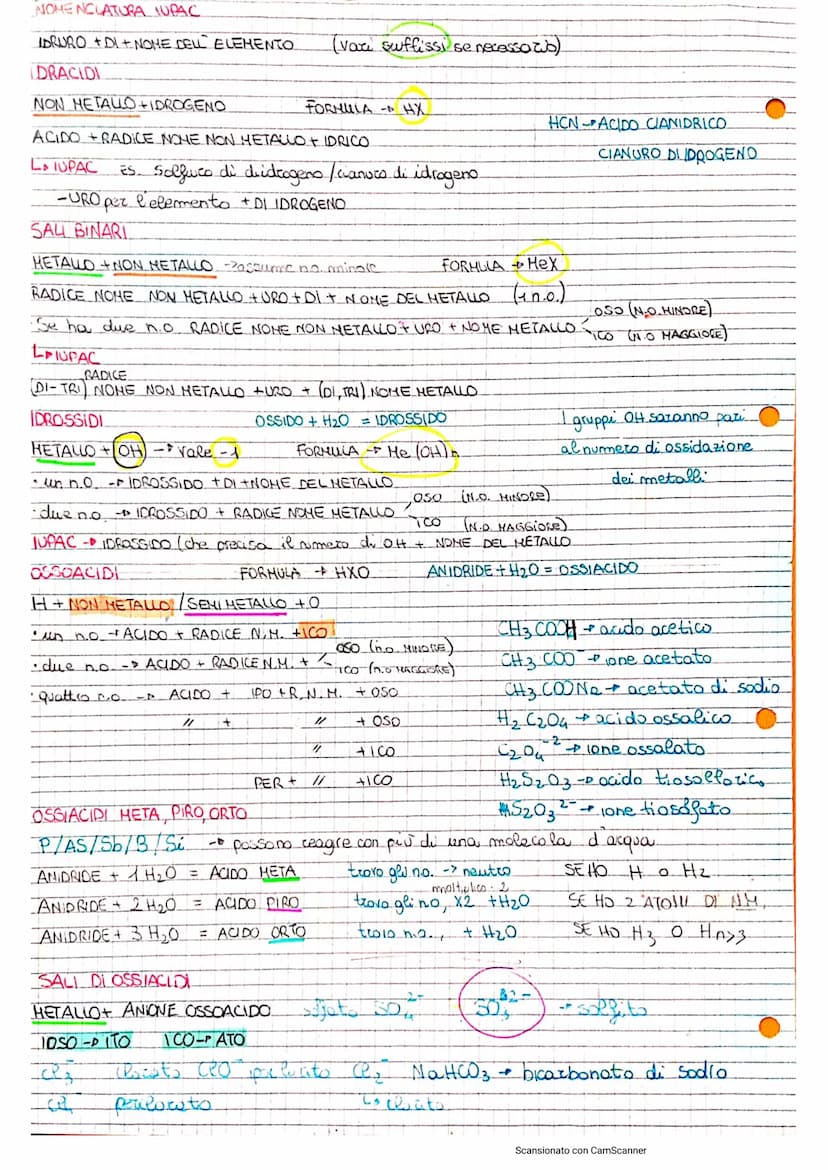 NOMENCLATURA IUPAC
IDRURO + DI + NOME DELL' ELEMENTO (vari suffissi se necessario)
IDRACIDI
NON METALLO + IDROGENO FORMULA → HX
HCN → ACIDO CIANIDRICO
ACIDO + RADICE NOME NON METALLO + IDRICO
CIANURO DI IDROGENO
↳ IUPAC ES. Solfuro di diidrogeno / cianuro di idrogeno
-URO per l'elemento + DI IDROGENO
SALI BINARI
METALLO + NON METALLO → assume n.o. minore FORMULA → MeX
RADICE NOME NON METALLO + URO + DI + NOME DEL METALLO (1 n.o.)
Se ha due n.o. RADICE NOME NON METALLO + URO + NOME METALLO OSO (N.O. MINORE)
ICO (N.O MAGGIORE)
↳ IUPAC
(DI-TRI) RADICE NOME NON METALLO + URO + (DI, TRI) NOME METALLO
IDROSSIDI OSSIDO + H2O = IDROSSIDO I gruppi OH saranno pari
METALLO + OH → Vale -1 FORMULA → Me (OH)n al numero di ossidazione
• un n.o. → IDROSSIDO + DI + NOME DEL METALLO dei metalli
• due n.o → IDROSSIDO + RADICE NOME METALLO OSO (N.O. MINORE)
ICO (N.O. MAGGIORE)
IUPAC → IDROSSIDO (che precisa il numero di OH + NOME DEL METALLO
OSSOACIDI FORMULA → HXO ANIDRIDE + H2O = OSSIACIDO
H + NON METALLO / SEMIMETALLO + O
• un n.o. → ACIDO + RADICE N.M. + ICO CH3COOH → acido acetico
• due n.o → ACIDO + RADICE N.M. + OSO (n.o. MINORE)
ICO (n.o MAGGIORE) CH3COO⁻ → ione acetato
• quattro n.o → ACIDO + IPO + R.N.M. + OSO CH3COONa → acetato di sodio
// + // + OSO H2C2O4 → acido ossalico
// + ICO C2O4⁻² → ione ossalato
PER + // + ICO H2S2O3 → acido tiosolforico
OSSIACIDI META, PIRO, ORTO S2O3²⁻ → ione tiosolfato
P/AS/Sb/B/Si → possono reagire con più di una molecola d'acqua
ANIDRIDE + 1H2O = ACIDO META trovo gli no. → neutro SE HO H o H2
ANIDRIDE + 2H2O = ACIDO PIRO trovo gli no, x2 +H2O SE HO 2 ATOMI DI NM.
moltiplico · 2
ANIDRIDE + 3H2O = ACIDO ORTO trovo n.o., + H2O SE HO H3 O Hn>3
SALI DI OSSIACIDI
METALLO + ANIONE OSSOACIDO solfato SO4²⁻ SO3²⁻ → solfito
IOSO → ITO ICO → ATO
clorato ClO⁻ NaHCO3 → bicarbonato di sodio
perclorato